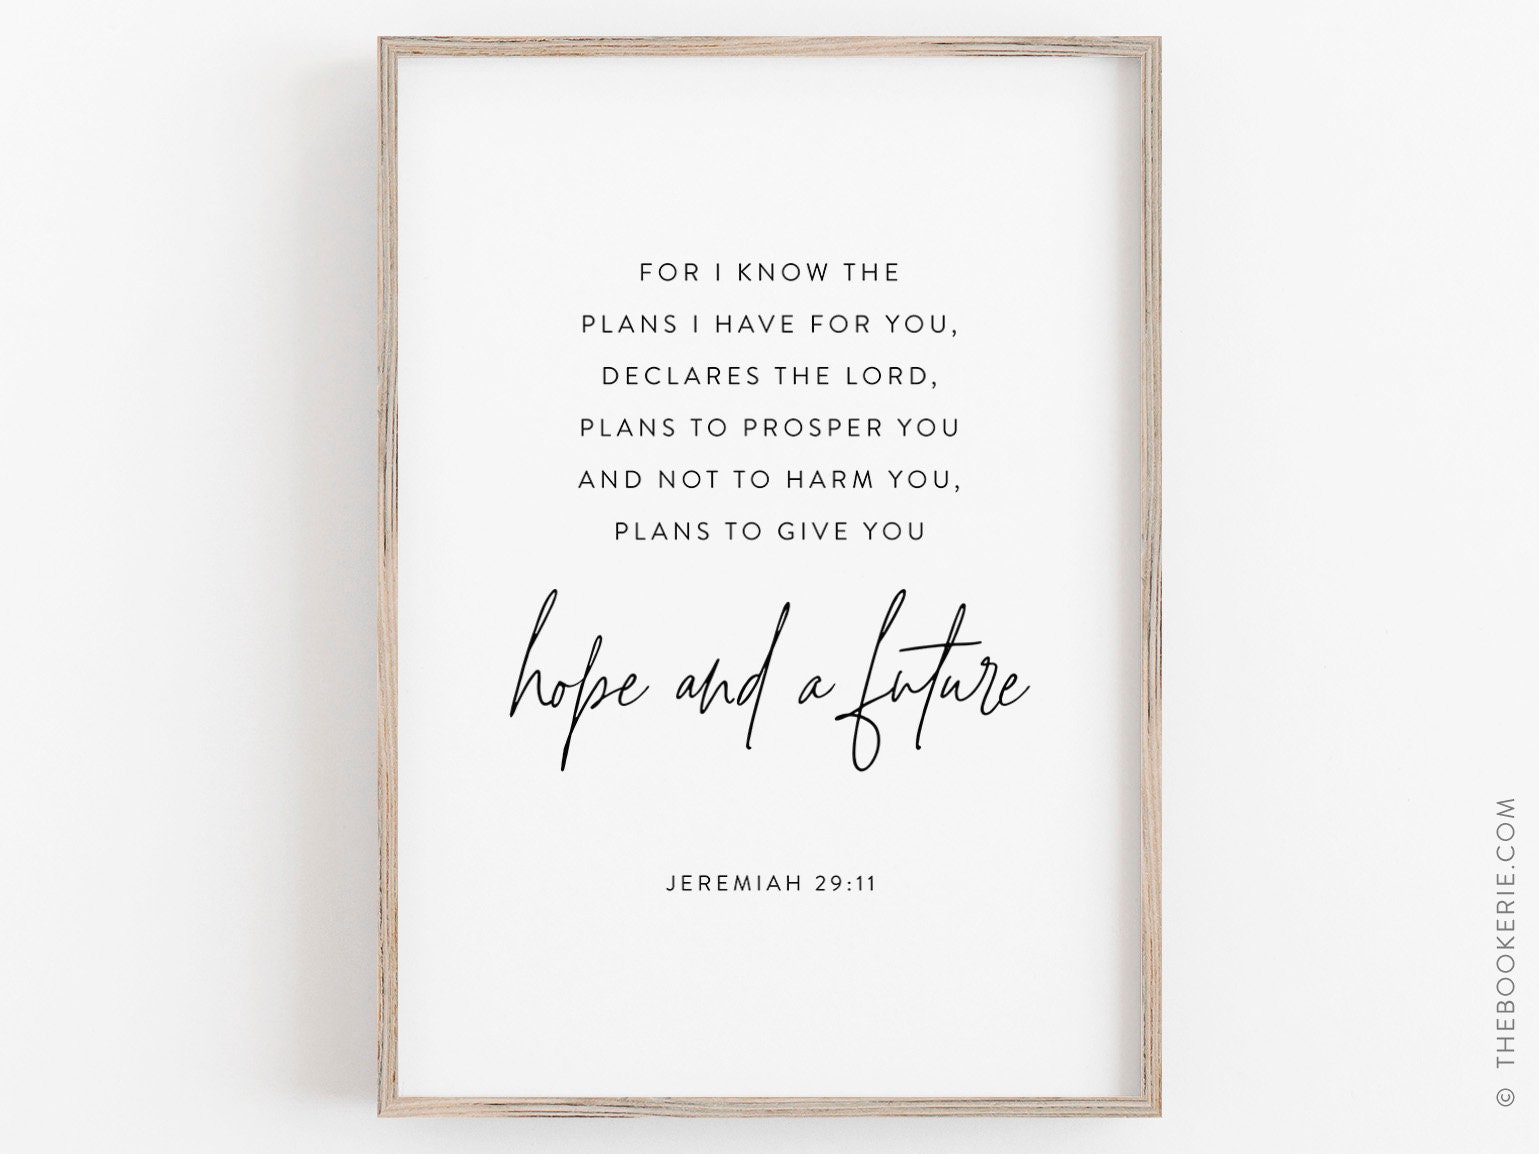 FOR I KNOW THE
PLANS I HAVE FOR YOU,
DECLARES THE LORD,
PLANS TO PROSPER YOU
AND NOT TO HARM YOU,
PLANS TO GIVE YOU
hope and a future
JEREMIAH 29:11
© THEBOOKERIE.COM